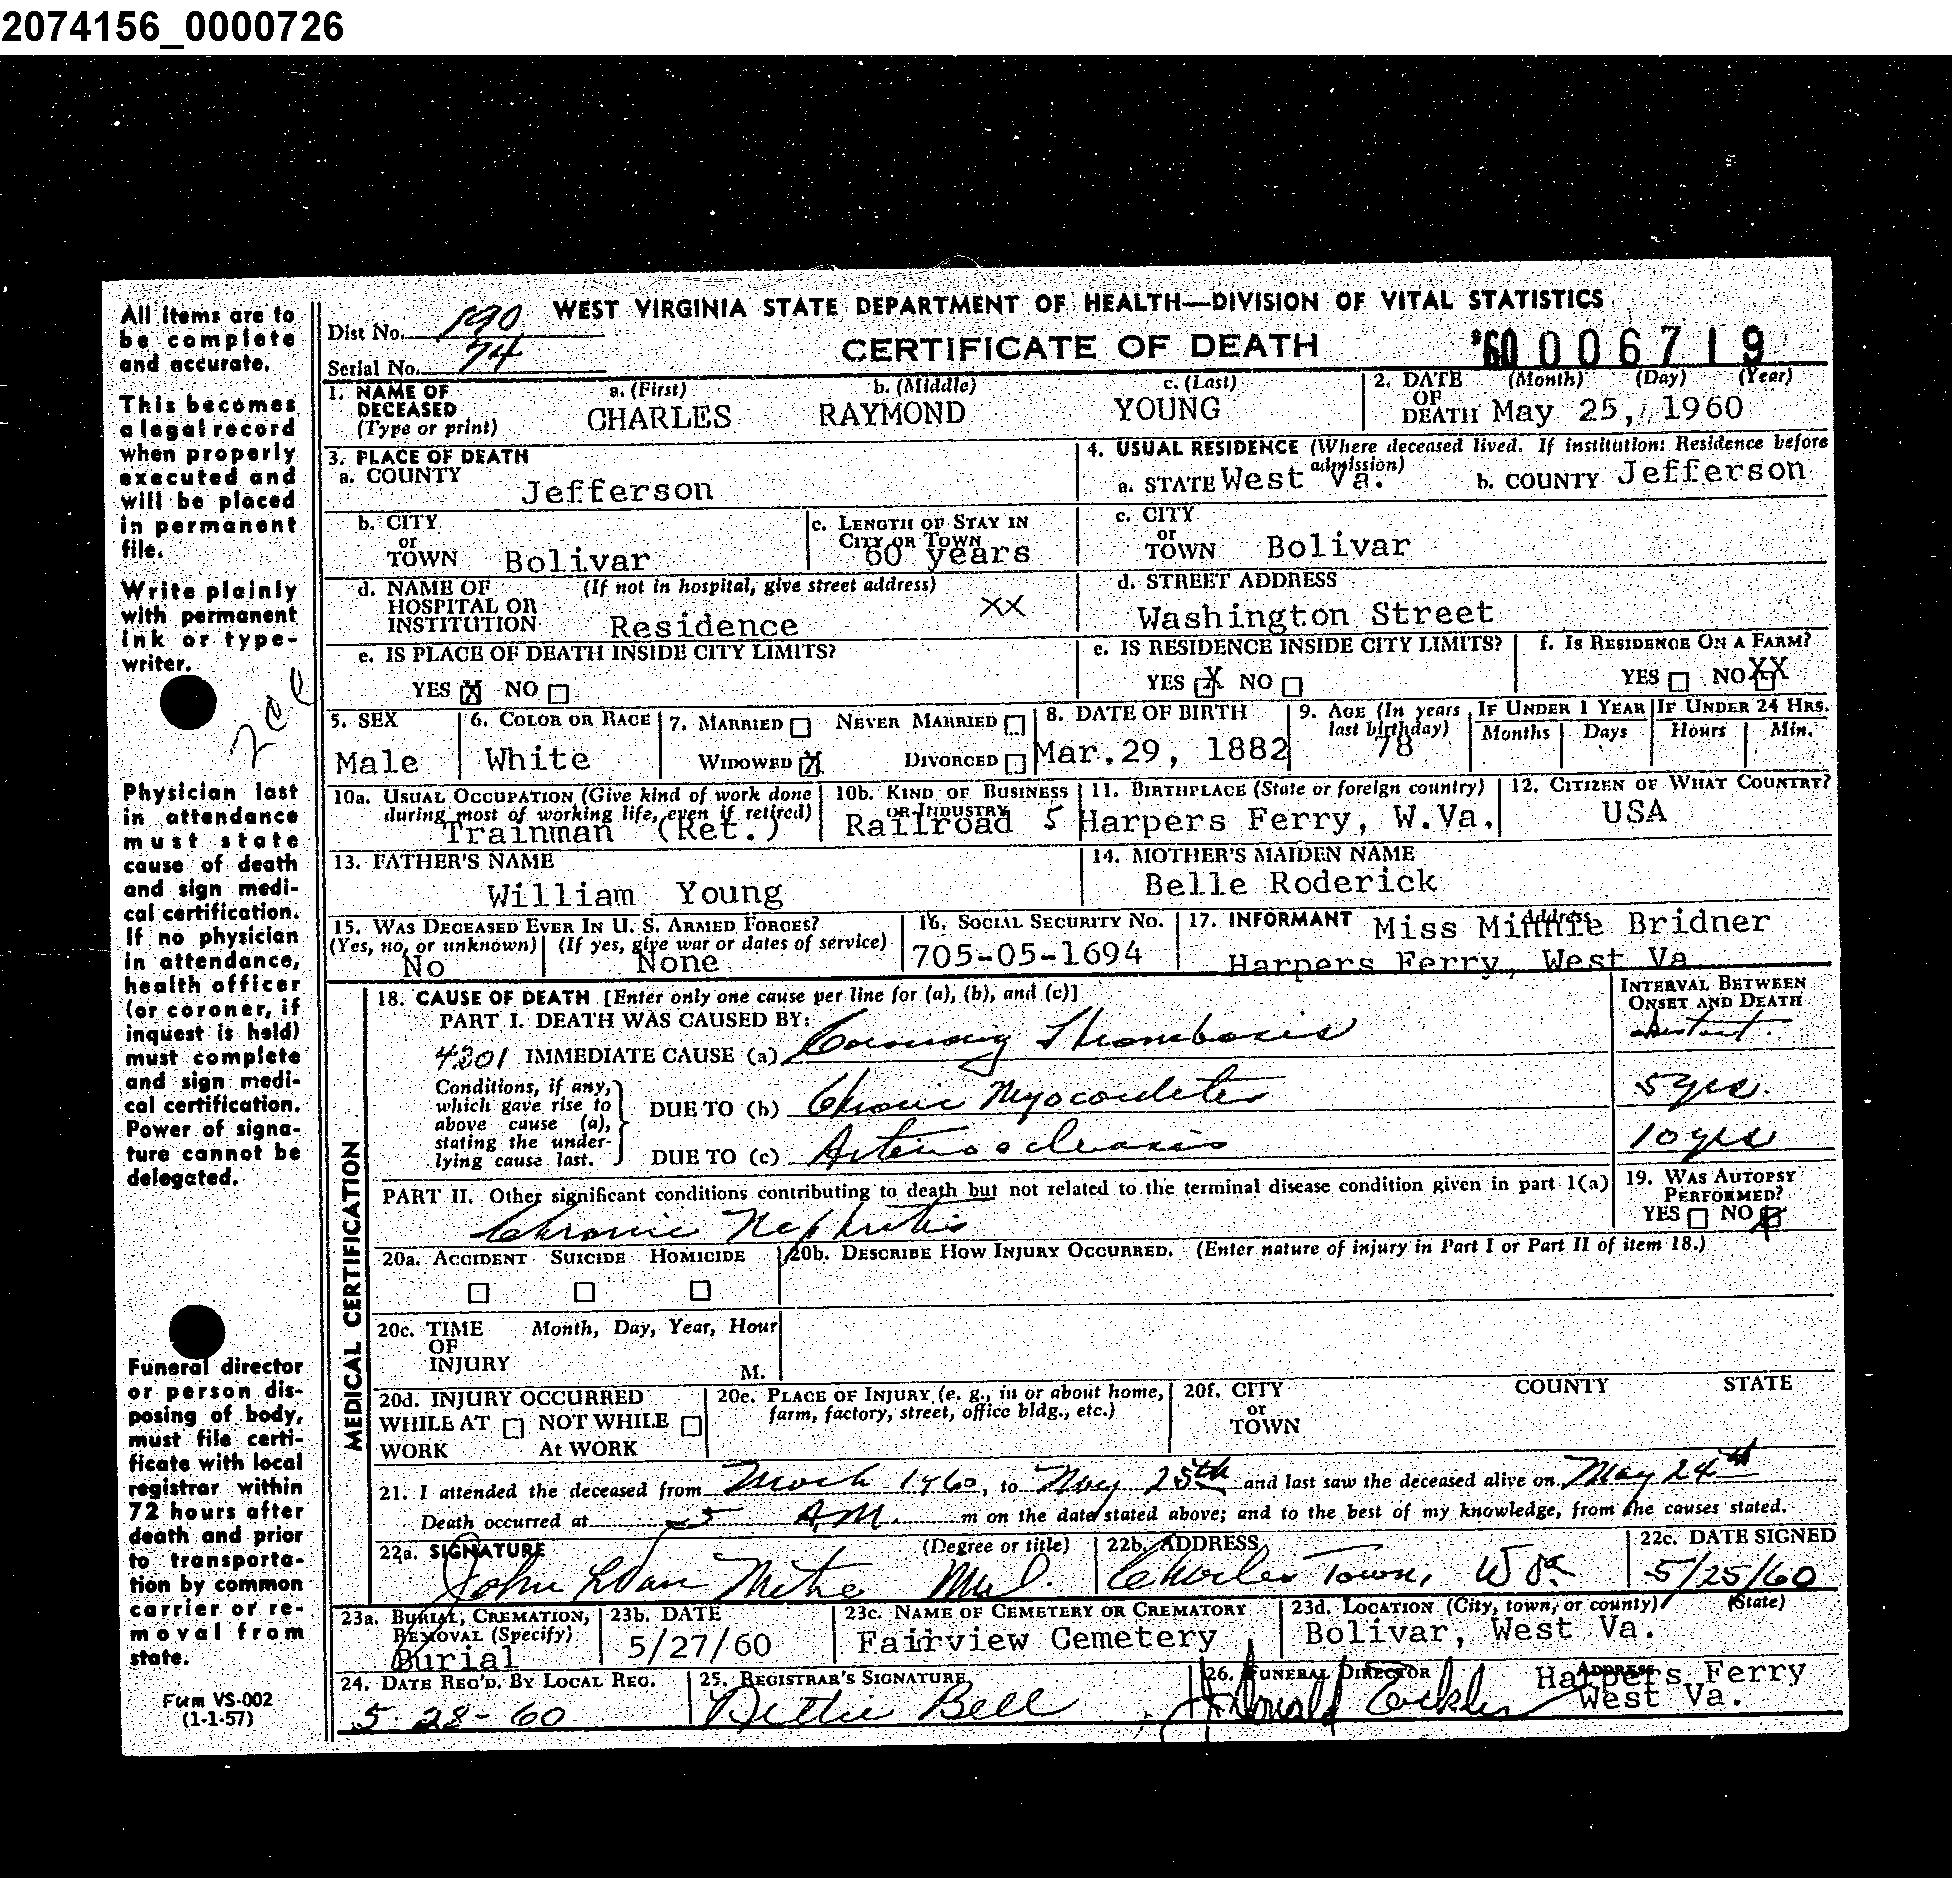 2074156_0000726
All items are to
be complete
and accurate.
This becomes
a legal record
when properly
executed and
will be placed
in permanent
file.
Write plainly
with permanent
ink or type-
writer.
Physician last
in attendance
must state
cause of death
and sign medi-
cal certification.
If no physician
in attendance,
health officer
(or coroner, if
inquest is held)
must complete
and sign medi-
cal certification.
Power of signa-
ture cannot be
delegated.
Funeral director
or person dis-
posing of body,
must file certi-
ficate with local
registrar within
72 hours after
death and prior
to transporta-
tion by common
carrier or re-
moval from
state.
Form VS-002
(1-1-57)
WEST VIRGINIA STATE DEPARTMENT OF HEALTH—DIVISION OF VITAL STATISTICS
Dist No. 190
Serial No. 74
CERTIFICATE OF DEATH
'60 006719
1. NAME OF DECEASED (Type or print) a. (First) b. (Middle) c. (Last)
CHARLES RAYMOND YOUNG
2. DATE OF DEATH (Month) (Day) (Year)
May 25, 1960
3. PLACE OF DEATH
a. COUNTY Jefferson
4. USUAL RESIDENCE (Where deceased lived. If institution: Residence before admission)
a. STATE West Va. b. COUNTY Jefferson
b. CITY or TOWN Bolivar
c. LENGTH OF STAY IN CITY OR TOWN 60 years
c. CITY or TOWN Bolivar
d. NAME OF HOSPITAL OR INSTITUTION (If not in hospital, give street address)
Residence XX
d. STREET ADDRESS
Washington Street
e. IS PLACE OF DEATH INSIDE CITY LIMITS?
YES X NO
e. IS RESIDENCE INSIDE CITY LIMITS?
YES X NO
f. IS RESIDENCE ON A FARM?
YES NO XX
5. SEX Male
6. COLOR OR RACE White
7. MARRIED NEVER MARRIED
WIDOWED X DIVORCED
8. DATE OF BIRTH Mar.29, 1882
9. AGE (In years last birthday) 78
IF UNDER 1 YEAR Months Days
IF UNDER 24 HRS. Hours Min.
10a. USUAL OCCUPATION (Give kind of work done during most of working life, even if retired)
Trainman (Ret.)
10b. KIND OF BUSINESS OR INDUSTRY
Railroad 5
11. BIRTHPLACE (State or foreign country)
Harpers Ferry, W.Va.
12. CITIZEN OF WHAT COUNTRY?
USA
13. FATHER'S NAME
William Young
14. MOTHER'S MAIDEN NAME
Belle Roderick
15. WAS DECEASED EVER IN U. S. ARMED FORCES?
(Yes, no, or unknown) (If yes, give war or dates of service)
No None
16. SOCIAL SECURITY NO.
705-05-1694
17. INFORMANT Address
Miss Minnie Bridner
Harpers Ferry, West Va
MEDICAL CERTIFICATION
18. CAUSE OF DEATH [Enter only one cause per line for (a), (b), and (c)]
INTERVAL BETWEEN ONSET AND DEATH
PART I. DEATH WAS CAUSED BY:
4201 IMMEDIATE CAUSE (a) Coronary Thrombosis Instant.
Conditions, if any, which gave rise to above cause (a), stating the under-lying cause last.
DUE TO (b) Chronic Myocarditis 5 yrs.
DUE TO (c) Arteriosclerosis 10 yrs
PART II. Other significant conditions contributing to death but not related to the terminal disease condition given in part 1(a)
Chronic Nephritis
19. WAS AUTOPSY PERFORMED?
YES NO X
20a. ACCIDENT SUICIDE HOMICIDE
20b. DESCRIBE HOW INJURY OCCURRED. (Enter nature of injury in Part I or Part II of item 18.)
20c. TIME OF INJURY Month, Day, Year, Hour
M.
20d. INJURY OCCURRED
WHILE AT WORK NOT WHILE At WORK
20e. PLACE OF INJURY (e. g., in or about home, farm, factory, street, office bldg., etc.)
20f. CITY or TOWN COUNTY STATE
21. I attended the deceased from March 1960, to May 25th and last saw the deceased alive on May 24th
Death occurred at 5 A.M. m on the date stated above; and to the best of my knowledge, from the causes stated.
22a. SIGNATURE (Degree or title)
John M.D.
22b. ADDRESS
Charles Town, W Va
22c. DATE SIGNED
5/25/60
23a. BURIAL, CREMATION, REMOVAL (Specify)
Burial
23b. DATE
5/27/60
23c. NAME OF CEMETERY OR CREMATORY
Fairview Cemetery
23d. LOCATION (City, town, or county) (State)
Bolivar, West Va.
24. DATE REC'D. BY LOCAL REG.
5-28-60
25. REGISTRAR'S SIGNATURE
Bell
26. FUNERAL DIRECTOR ADDRESS
Donald Eackles
Harpers Ferry
West Va.